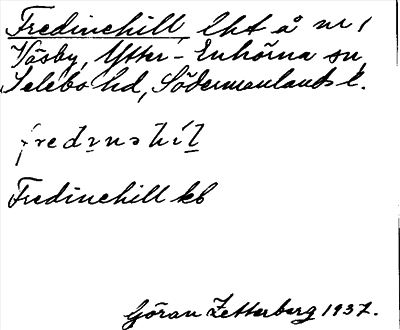 Fredinehill, lht å nr 1
Väsby, Ytter-Enhörna sn,
Selebo hd, Södermanlands l.
Fredinehill kb
Göran Zetterberg 1937.